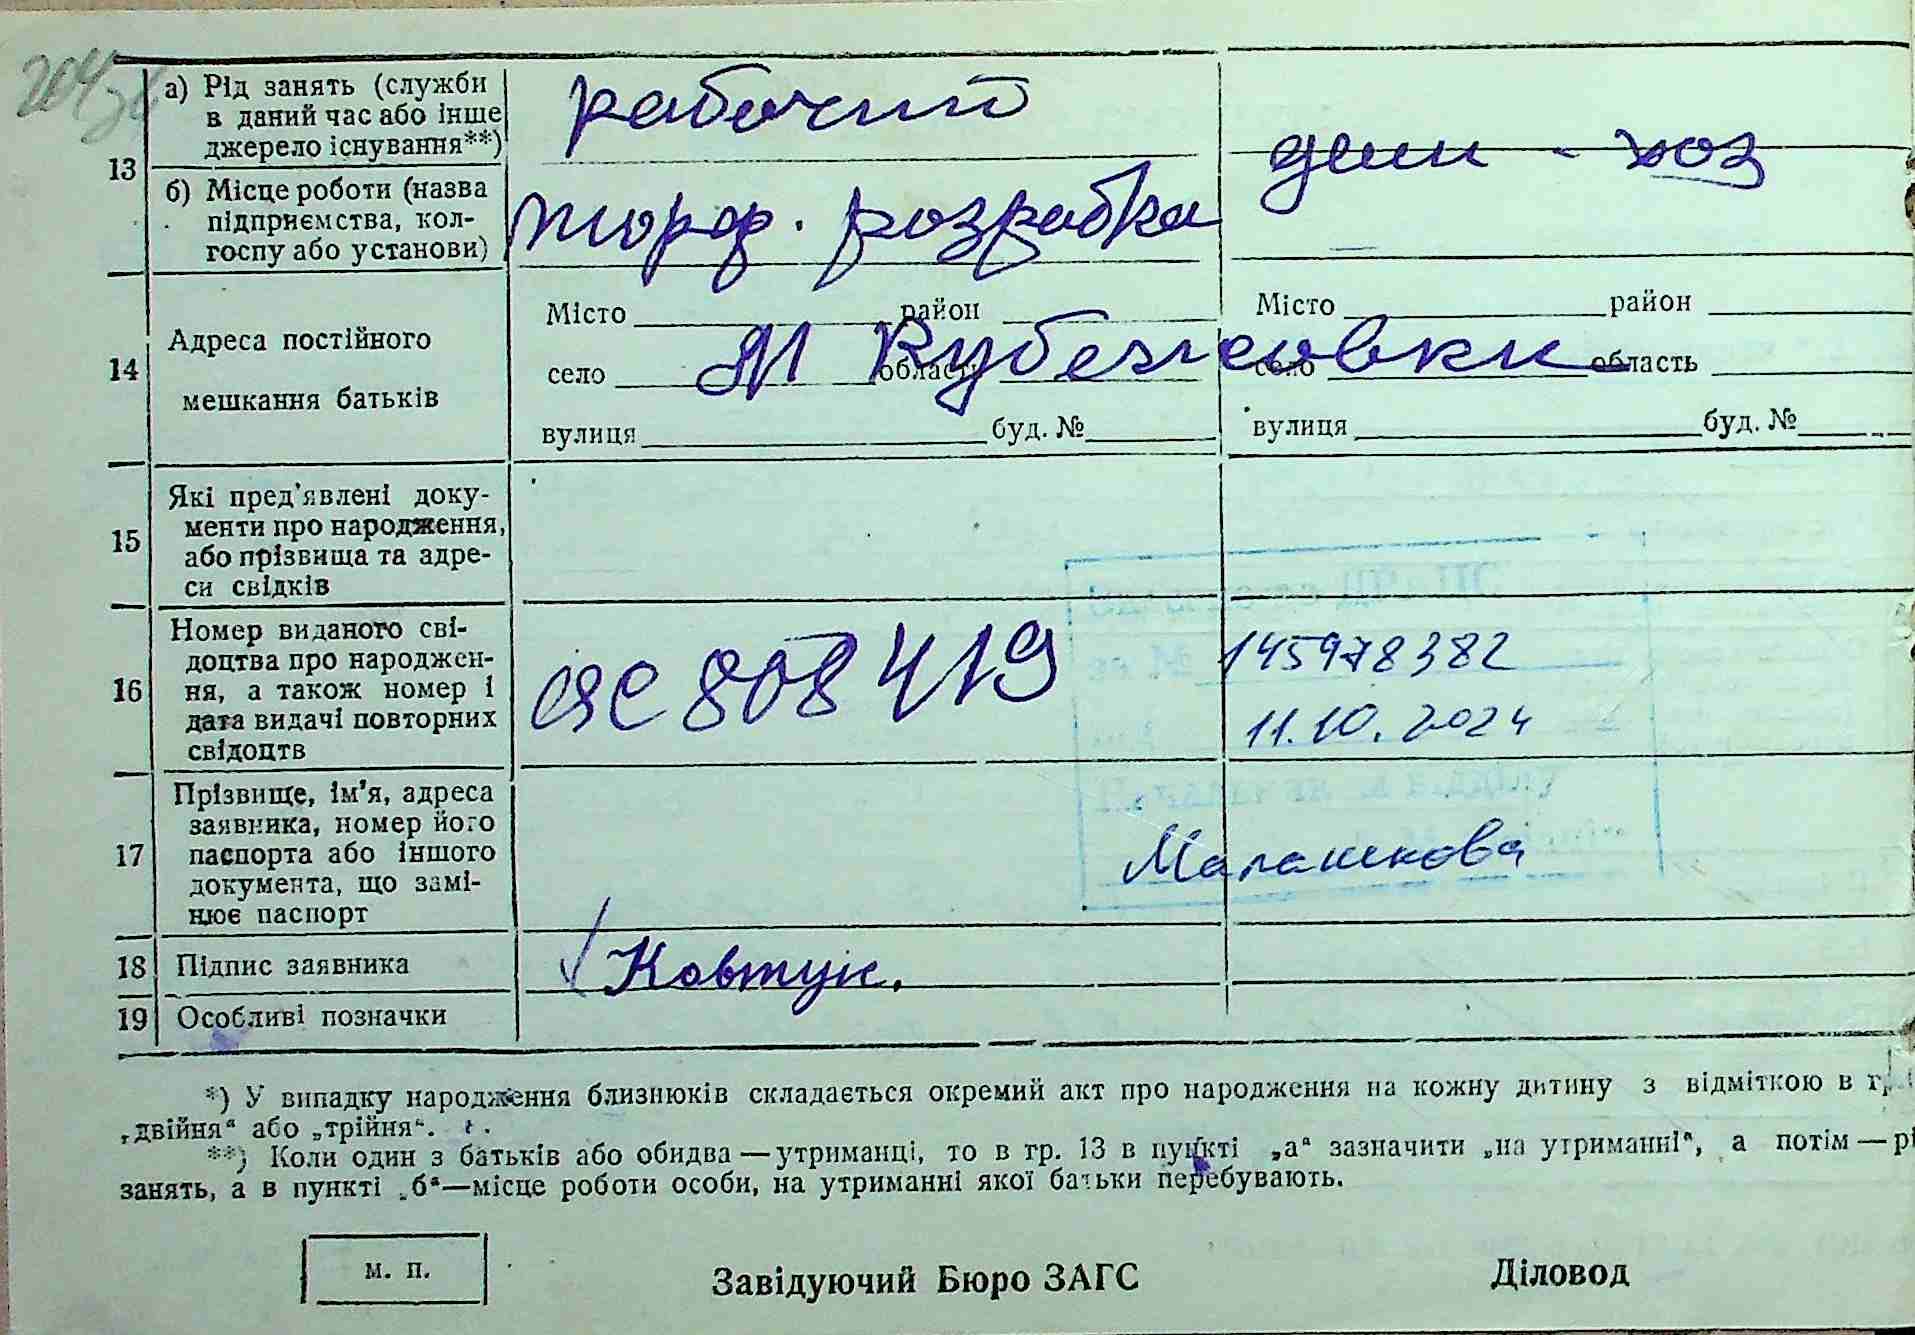 13
а) Рід занять (служби
в даний час або інше
джерело існування**)
рабочий
дом - хоз
б) Місце роботи (назва
підприємства, кол-
госпу або установи)
торф. розрабка
14
Адреса постійного
мешкання батьків
Місто район
село область
вулиця буд. №
Місто район
село область
вулиця буд. №
М Кубежовки
15
Які пред'явлені доку-
менти про народження,
або прізвища та адре-
си свідків
16
Номер виданого сві-
доцтва про народжен-
ня, а також номер і
дата видачі повторних
свідоцтв
ЯЄ 808419
145978382
11.10.2024
17
Прізвище, ім'я, адреса
заявника, номер його
паспорта або іншого
документа, що замі-
нює паспорт
Малашкова
18
Підпис заявника
Ковтун.
19
Особливі позначки
*) У випадку народження близнюків складається окремий акт про народження на кожну дитину з відміткою в гр.
„двійня“ або „трійня“.
**) Коли один з батьків або обидва — утриманці, то в гр. 13 в пункті „а“ зазначити „на утриманні“, а потім — рі
занять, а в пункті „б“—місце роботи особи, на утриманні якої батьки перебувають.
м. п.
Завідуючий Бюро ЗАГС
Діловод